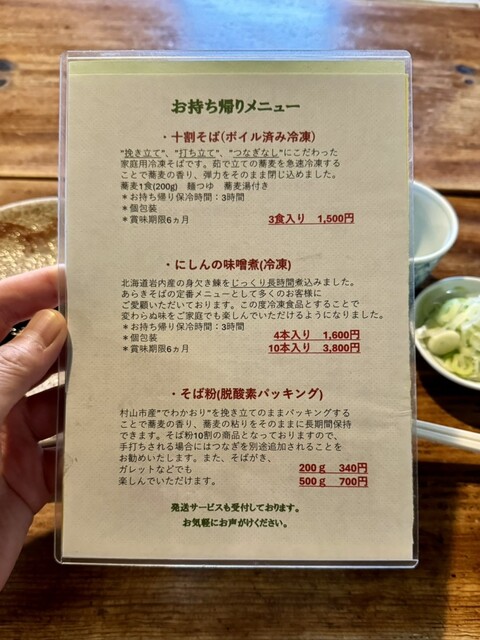 お持ち帰りメニュー
・十割そば(ボイル済み冷凍)
"挽き立て"、"打ち立て"、"つなぎなし"にこだわった
家庭用冷凍そばです。茹で立ての蕎麦を急速冷凍する
ことで蕎麦の香り、弾力をそのまま閉じ込めました。
蕎麦1食(200g)　麺つゆ　蕎麦湯付き
＊お持ち帰り保冷時間：3時間
＊個包装
＊賞味期限6ヵ月　3食入り　1,500円
・にしんの味噌煮(冷凍)
北海道岩内産の身欠き鰊をじっくり長時間煮込みました。
あらきそばの定番メニューとして多くのお客様に
ご愛顧いただいております。この度冷凍食品とすることで
変わらぬ味をご家庭でも楽しんでいただけるようになりました。
＊お持ち帰り保冷時間：3時間
＊個包装　4本入り　1,600円
＊賞味期限6ヵ月　10本入り　3,800円
・そば粉(脱酸素パッキング)
村山市産"でわかおり"を挽き立てのままパッキングする
ことで蕎麦の香り、蕎麦の粘りをそのままに長期間保持
できます。そば粉10割の商品となっておりますので、
手打ちされる場合にはつなぎを別途追加されることを
お勧めいたします。また、そばがき、
ガレットなどでも　200ｇ　340円
楽しんでいただけます。　500ｇ　700円
発送サービスも受付しております。
お気軽にお声がけください。